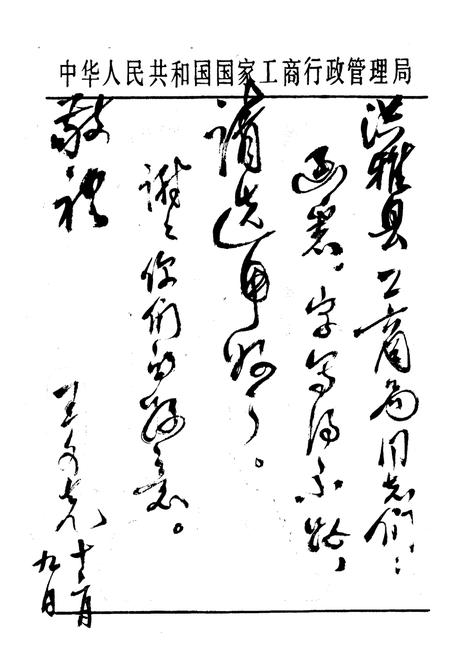 中华人民共和国国家工商行政管理局
洪雅县工商局同志们：
函悉，字写得不好，
请选用吧。
谢谢你们的好意。
敬礼
王文克
十二月
九日